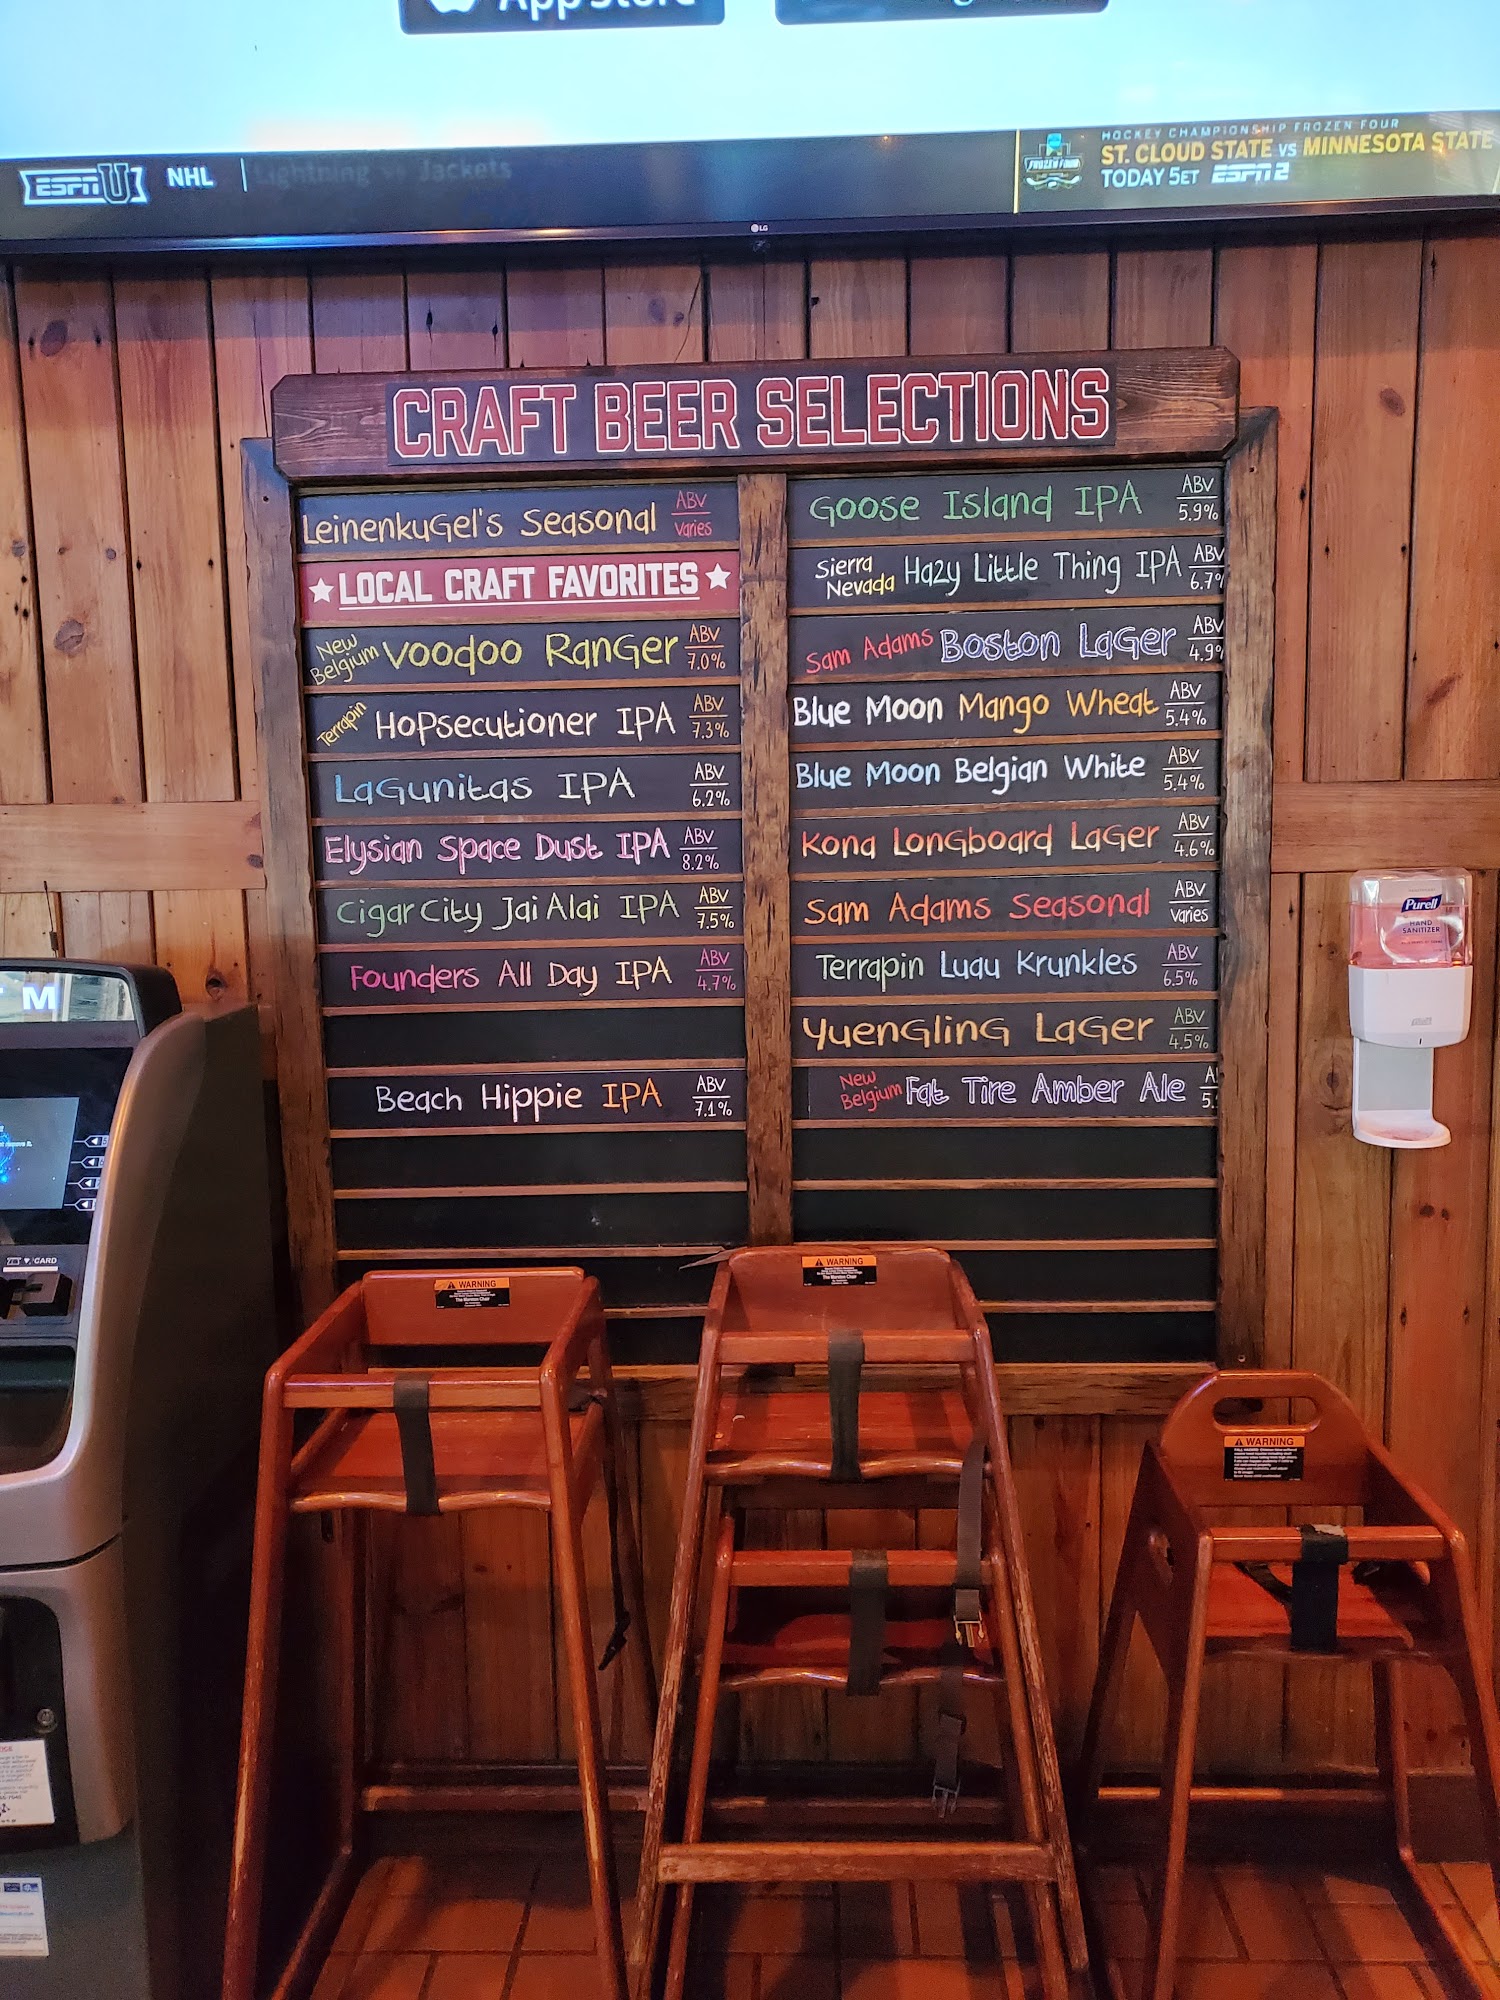 App Store
ESPNU NHL
Lightning vs Jackets
HOCKEY CHAMPIONSHIP FROZEN FOUR
FROZEN FOUR
ST. CLOUD STATE VS MINNESOTA STATE
TODAY 5ET ESPN2
LG
CRAFT BEER SELECTIONS
Leinenkugel's Seasonal ABV Varies
LOCAL CRAFT FAVORITES
New Belgium Voodoo Ranger ABV 7.0%
Terrapin Hopsecutioner IPA ABV 7.3%
Lagunitas IPA ABV 6.2%
Elysian Space Dust IPA ABV 8.2%
Cigar City Jai Alai IPA ABV 7.5%
Founders All Day IPA ABV 4.7%
Beach Hippie IPA ABV 7.1%
Goose Island IPA ABV 5.9%
Sierra Nevada Hazy Little Thing IPA ABV 6.7%
Sam Adams Boston Lager ABV 4.9%
Blue Moon Mango Wheat ABV 5.4%
Blue Moon Belgian White ABV 5.4%
Kona Longboard Lager ABV 4.6%
Sam Adams Seasonal ABV Varies
Terrapin Luau Krunkles ABV 6.5%
Yuengling Lager ABV 4.5%
New Belgium Fat Tire Amber Ale A 5.
Purell
HAND
SANITIZER
M
CARD
WARNING
WARNING
WARNING